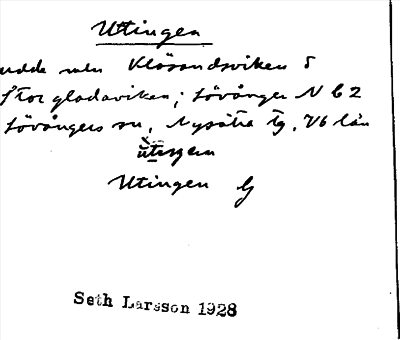 Utingen
udde mln Klösandsviken o
Storgladaviken; Lövånger N b 2
Lövångers sn, Nysätra tg, Vb län
Utingen G
Seth Larsson 1928